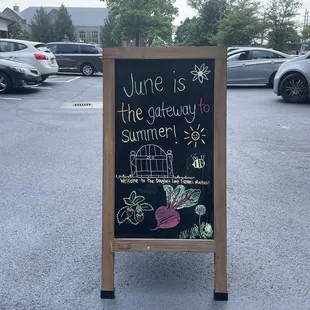 June is
the gateway to
summer!
Welcome to the Douglass Loop Farmers Market!